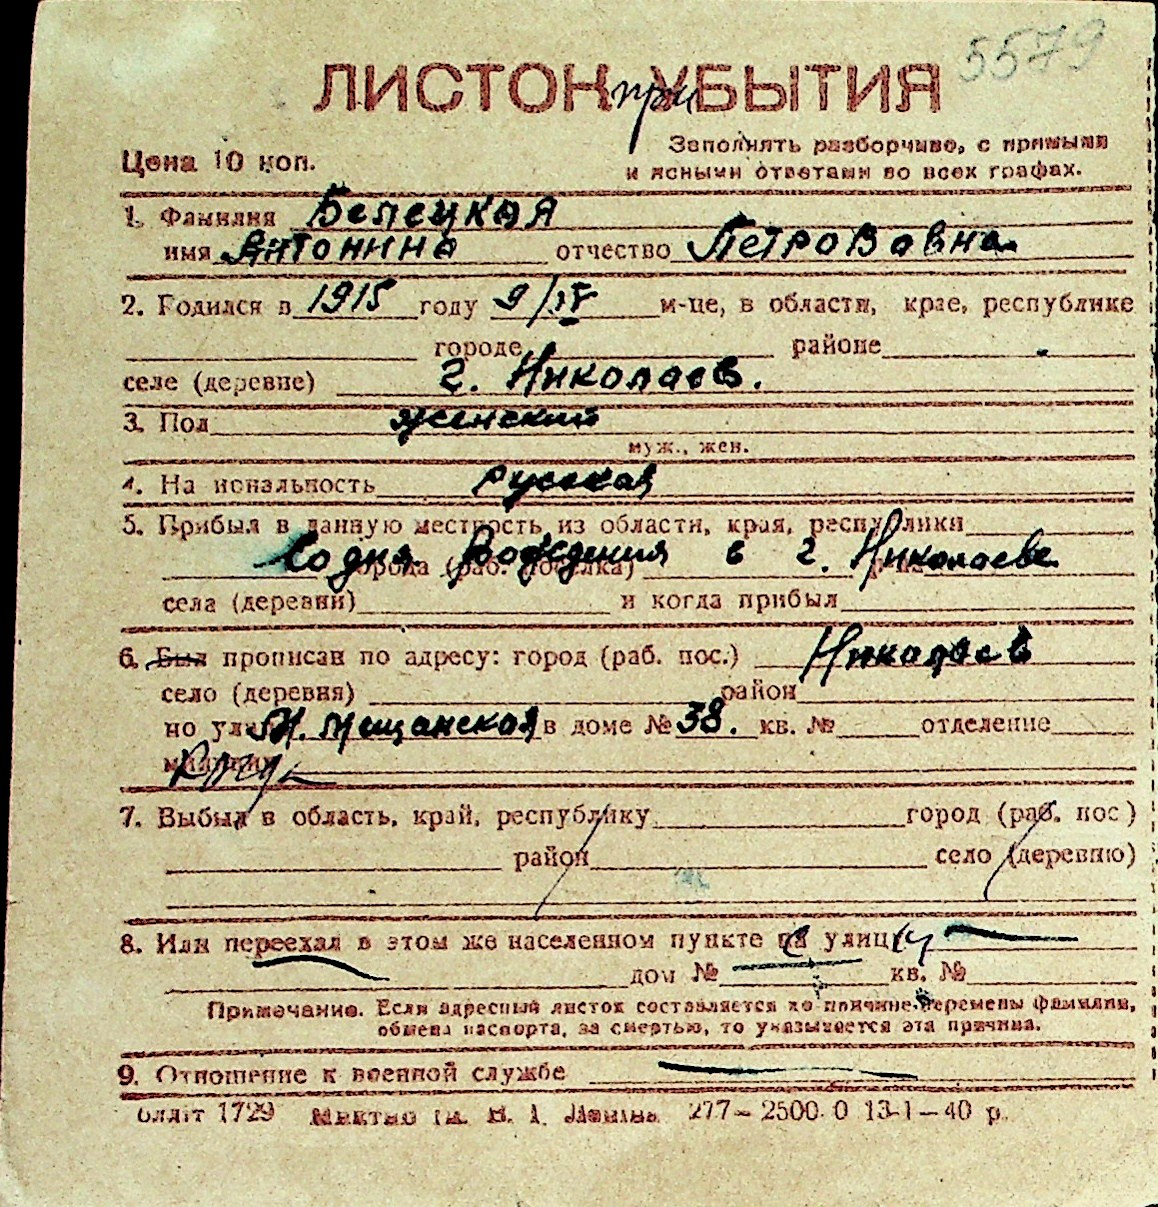 5579
ЛИСТОК при УБЫТИЯ
Цена 10 коп.
Заполнять разборчиво, с прямыми
и ясными ответами во всех графах.
1. Фамилия Белецкая
имя Антонина отчество Петровавна
2. Родился в 1915 году 9/IV м-це, в области, крае, республике
городе районе
селе (деревне) г. Николаев.
3. Пол женский
муж., жен.
4. На иональность русская
5. Прибыл в данную местность из области, края, республики
Со дня рождения в г. Николаеве
города (раб. поселка)
села (деревни) и когда прибыл
6. Был прописан по адресу: город (раб. пос.) Николаев
село (деревня) район
но ули Н. Мещанская в доме № 38. кв. № отделение
милиции
7. Выбыл в область, край, республику город (раб. пос)
район село (деревню)
8. Или переехал в этом же населенном пункте на улицу
дом № кв. №
Примечание. Если адресный листок составляется по причине перемены фамилии,
обмена паспорта, за смертью, то указывается эта причина.
9. Отношение к военной службе
1729 277—2500 0 13-1—40 р.